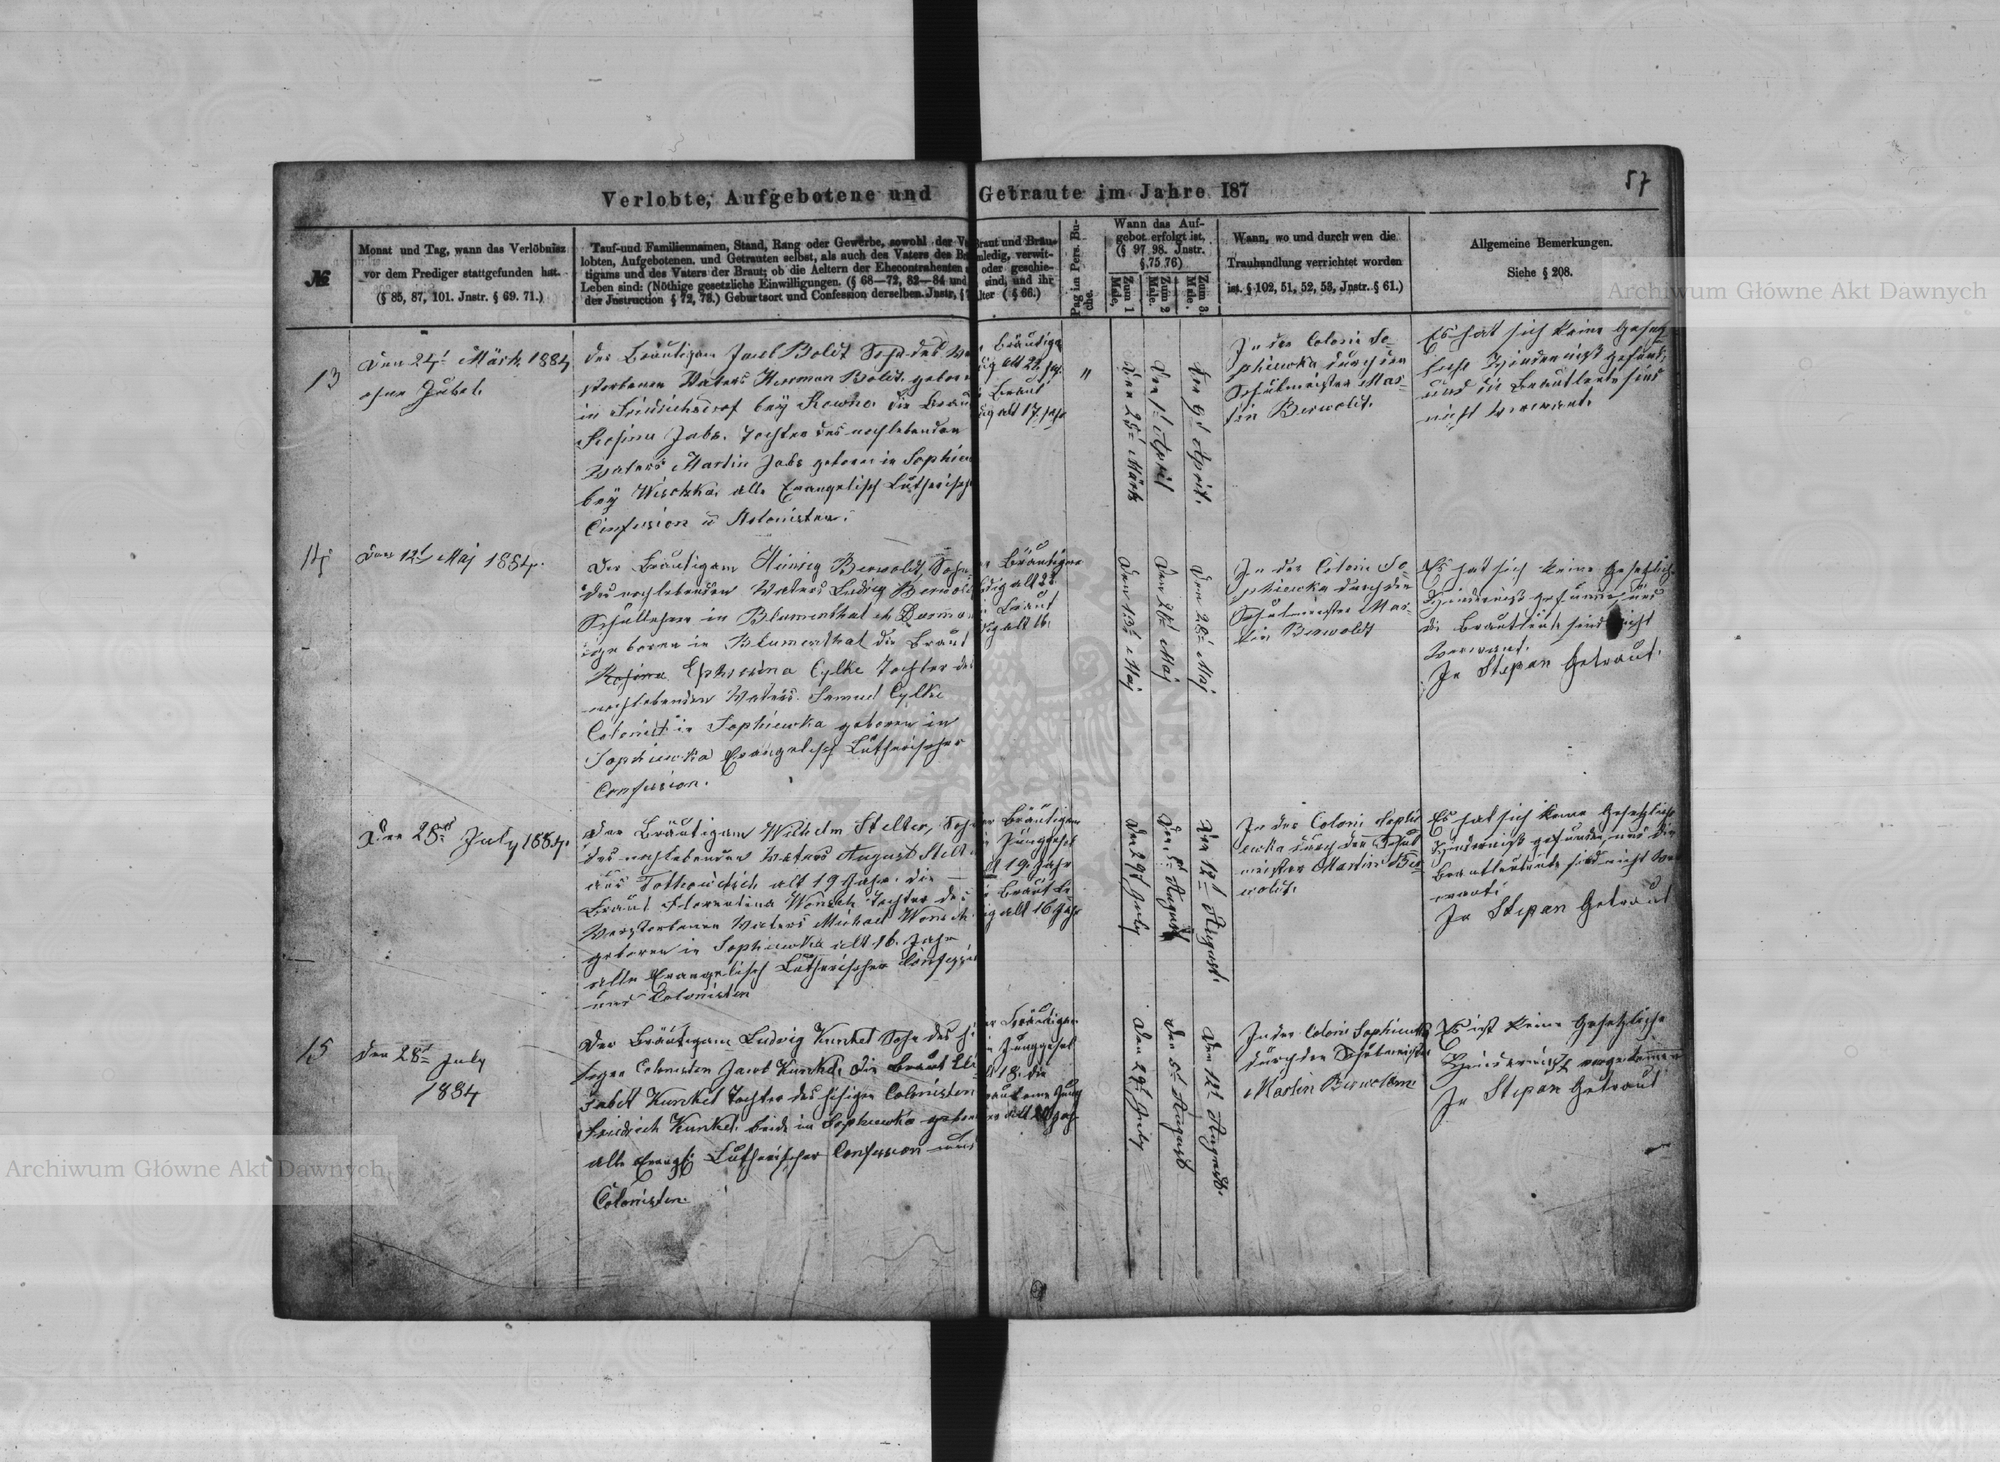 Verlobte, Aufgebotene und Getraute im Jahre 187
57
№
Monat und Tag, wann das Verlöbniss
vor dem Prediger stattgefunden hat.
(§ 85, 87, 101. Jnstr. § 69. 71.)
Tauf-und Familiennamen, Stand, Rang oder Gewerbe, sowohl der
lobten, Aufgebotenen, und Getrauten selbst, als auch des Vaters des
tigams und des Vaters der Braut; ob die Aeltern der Ehecontrahenten
Leben sind: (Nöthige gesetzliche Einwilligungen. (§ 68—72, 82—84 und
der Jnstruction § 72, 78.) Geburtsort und Confession derselben. Jnstr.
raut und Bräu-
ledig, verwit-
oder geschie-
sind, und ihr
lter ( § 66.)
Pag im Pers. Bu-
che.
Wann das Auf-
gebot erfolgt ist,
(§ 97 98. Jnstr.
§.75 76)
Zum 1 Male.
Zum 2 Male.
Zum 3. Male.
Wann, wo und durch wen die
Trauhandlung verrichtet worden
ist. § 102, 51, 52, 53, Jnstr. § 61.)
Allgemeine Bemerkungen.
Siehe § 208.
13
Den 24t März 1884
ohne Jubel.
der Bräutigam Bolit Sohn des
storbenen Vaters Herman Bolit. gebor
in bey Rowno die Brau
Rosina Jabs. Tochter des nochlebenden
Vaters Martin Jabs geboren in Sophiew
bey alle Evangelisch Lutherisch
Confession u Kolonisten.
Bräutiga
ig alt 22. Jah
Braut
dig alt 17. Jahr
"
Den 25t März
Den 1t April
Den 9t April.
In der Coloni So-
phiewka durch den
Schulmeister Mar-
tin Berwoldt.
Es hat sich keine Gesetz
liche Hinderniß gefund.
und die Brautleute sind
nicht verwant.
14
Den 12t Maj 1884.
Der Bräutigam Heinrig Berwoldt, Sohn
des nochlebenden Vaters Ludwig Berwold
Schullehrer in Blumenthal
geboren in Blumenthal die Braut
Rosina Ephrosina Cylke Tochter des
nochlebenden Vaters Samuel Cylke
Colonist in Sophiewka geboren in
Sophiewka Evangelisch Lutherischer
Confession.
Bräutigam
dig alt 22.
Braut
dig alt 16.
Den 13t Maj
Den 20t Maj
Den 28t Maj
In der Coloni So-
phiewka durch den
Schulmeister Mar-
tin Berwoldt
Es hat sich keine Gesetzlich
Hinderniß gefunden, und
die Brautleute sind nicht
verwant.
In Stepan Getraut.
Den 28t July 1884.
der Bräutigam Wilhelm Stelter, Soh
des nochlebenden Vaters August Stelt
aus alt 19 Jahr. die
Braut Florentina Wonsch Tochter des
Verstorbenen Vaters Michael Wonsch
geboren in Sophiewka alt 16. Jahr
alle Evangelisch Lutherischer Confessi
und Colonisten
er Bräutigam
Junggesel
19. Jahr
Braut le
ig alt 16 Jahr
Den 29t July
Den 5t August
Den 12t August.
In der Coloni Sophi
ewka durch den Schul
meister Martin Ber
woldt.
Es hat sich keine Gesetzliche
Hinderniß gefunden, und die
Brautleute sind nicht ver
want.
In Stepan Getraut
15
Den 28t July
1884
Der Bräutigam Ludwig Kunkel Sohn des hi
sigen Colonisten Jacob Kunkel. die Braut Eli
sabet Kunkel Tochter des hisigen Colonisten
Friedrich Kunkel. beide in Sophiewka gebor
alle Evangl. Lutherischer Confession und
Colonisten.
er Bräutigam
Junggesel
18. die
raut eine Jung
er alt 20 Jah
Den 29t July
Den 5t August
Den 12t August.
In der Coloni Sophiewka
durch den Schulmeister
Martin Berwoldt
Es ist keine Gesetzliche
Hinderniße vorgekommen
In Stepan Getraut
Archiwum Główne Akt Dawnych
Archiwum Główne Akt Dawnych